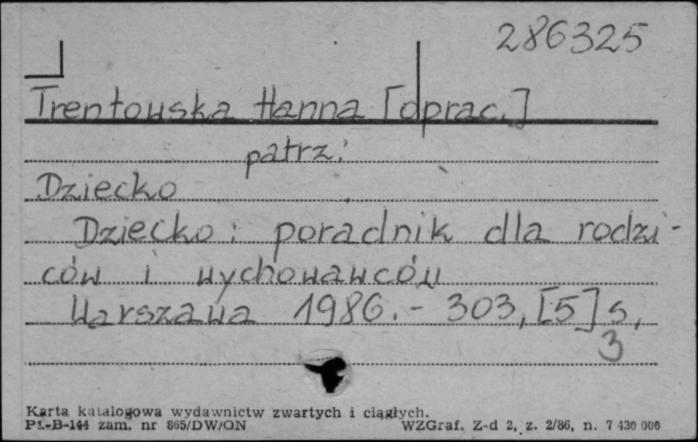 286325
Trentowska Hanna [oprac.]
patrz:
Dziecko
Dziecko : poradnik dla rodzi-
ców i wychowawców
Warszawa 1986.- 303, [5] s,
3
Karta katalogowa wydawnictw zwartych i ciągłych.
Pt-B-144 zam. nr 865/DW/ON WZGraf. Z-d 2, z. 2/86, n. 7 430 000